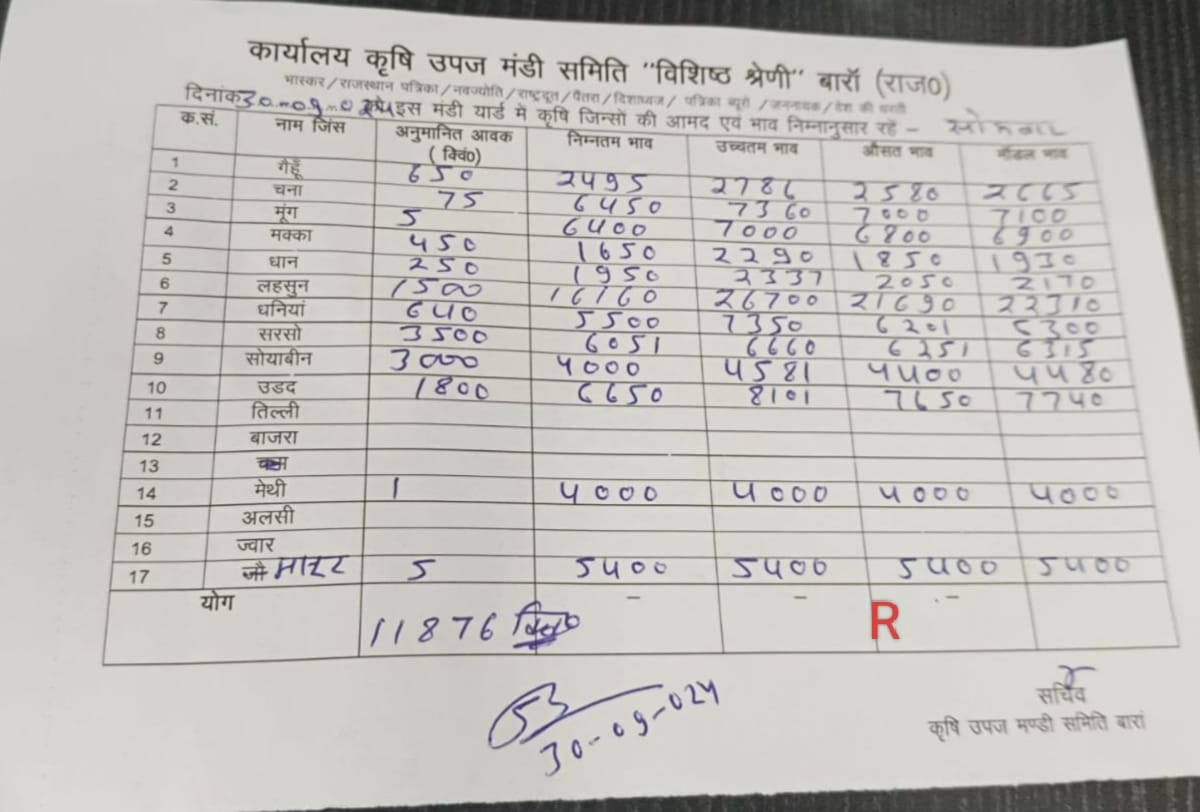 कार्यालय कृषि उपज मंडी समिति "विशिष्ठ श्रेणी" बारॉ (राज0)
भास्कर/राजस्थान पत्रिका/नवज्योति/राष्ट्रदूत/पैतरा/दिशाध्वज/ पत्रिका ब्यूरो /जननायक/देश की धरती
दिनांक 30-09-024 को इस मंडी यार्ड में कृषि जिन्सों की आमद एवं भाव निम्नानुसार रहें - सोमवार
क.सं. नाम जिंस अनुमानित आवक (क्विं0) निम्नतम भाव उच्चतम भाव औसत भाव मॉडल भाव
1 गैहूँ 650 2495 2786 2580 2665
2 चना 75 6450 7360 7000 7100
3 मूंग 5 6400 7000 6800 6900
4 मक्का 450 1650 2290 1850 1930
5 धान 250 1950 2337 2050 2170
6 लहसुन 1500 16160 26700 21690 22310
7 धनियां 640 5500 7350 6201 6300
8 सरसो 3500 6051 6660 6251 6315
9 सोयाबीन 3000 4000 4581 4400 4480
10 उडद 1800 6650 8101 7650 7740
11 तिल्ली
12 बाजरा
13
14 मेथी 1 4000 4000 4000 4000
15 अलसी
16 ज्वार
17 जौ 5 5400 5400 5400 5400
योग 11876 - - -
R
30-09-024
सचिव
कृषि उपज मण्डी समिति बारां